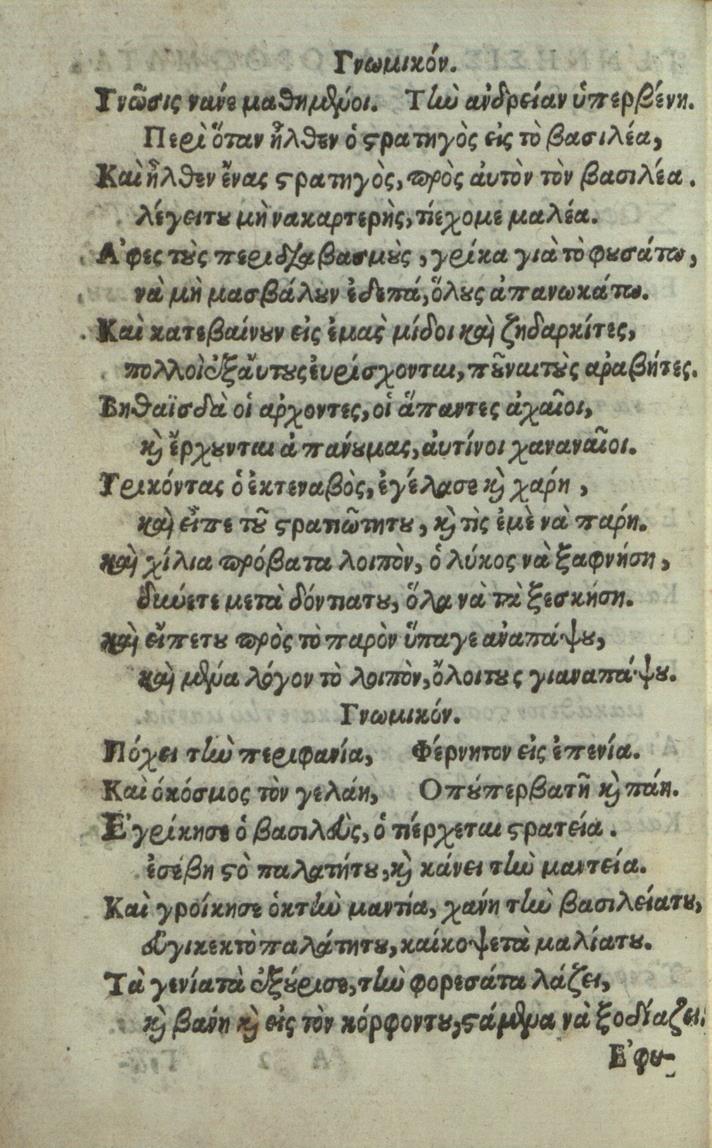 Γνωμικόν.
Γνῶσις νανε μαθημένοι. Τὴν ανδρείαν ὑπερβένη.
Περὶ ὅταν ἦλθεν ὁ στρατηγὸς εἰς τὸ βασιλέα,
Καὶ ἦλθεν ἕνας στρατηγὸς, πρὸς ἀυτὸν τὸν βασιλέα.
λέγειτου μὴ νακαρτερῆς, τίεχομε μαλέα.
Α᾽φες τοὺς περιδζαβασμοὺς, γρίκα γιὰ τὸ φουσάτω,
νὰ μὴ μασβάλουν ἐδεπά, ὅλους ἀπανωκάτω.
Καὶ κατεβαίνουν εἰς ἐμας μίδοι καὶ ζηδαρκίτες,
πολλοὶ ἐξ ἄυτους ἐυρίσχονται, ποῦναι τοὺς αραβήτες.
Βηθαϊσδὰ οἱ αρχοντες, οἱ ἅπαντες ἀχαῖοι,
καὶ ἔρχουνται ἀπανουμας, ἀυτίνοι χαναναῖοι.
Γρικόντας ὁ ἐκτεναβὸς, ἐγέλασε καὶ χαρη,
καὶ εἶπε τοῦ στρατιῶτητου, καὶ τὶς ἐμὲ νὰ παρη.
καὶ χίλια πρόβατα λοιπὸν, ὁ λύκος νὰ ξαφνήση,
δικύετε μετὰ δόντιατου, ὅλα νὰ τὰ ξεσκήση.
καὶ εἴπετου πρὸς τὸ παρὸν ὕπαγε αναπάψου,
καὶ μένα λόγον τὸ λοιπὸν, ὅλοιτους γιαναπάψου.
Γνωμικόν.
Πόχει τὴν περιφανία, Φέρνητον εἰς ἐπενία.
Καὶ ὁκόσμος τὸν γελάη, Οπούπερβατῆ καὶ πάη.
Ε᾽γρίκησε ὁ βασιλεὺς, ὁ τίέρχεται στρατεία.
ἐσέβη στὸ παλατήτου, καὶ κάνει τὴν μαντεία.
Καὶ γροίκησε ὁκτὴν μαντία, χαύη τὴν βασιλείατου,
ευγικεκτὸ παλάτητου, καίκοψετὰ μαλίατου.
Τὰ γενίατὰ ἐξύρισε, τὴν φορεσάτα λάζει,
καὶ βαύη καὶ εἰς τὸν κόρφοντου, στάμενα νὰ ξοδίαζει.
Ε᾽φυ-